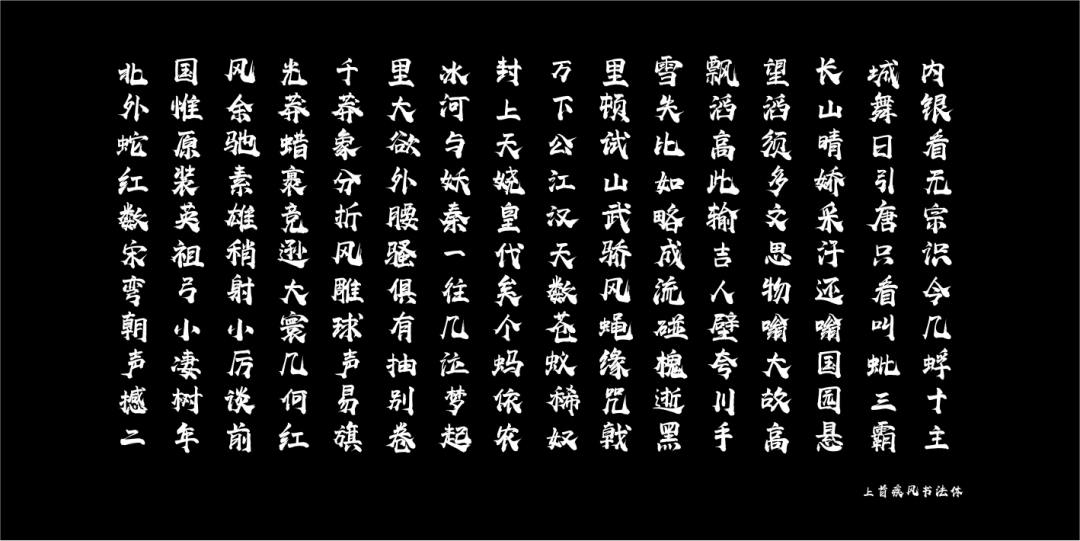 北国风光千里冰封万里雪飘望长城内
外惟余莽莽大河上下顿失滔滔山舞银
蛇原驰蜡象欲与天公试比高须晴日看
红装素裹分外妖娆江山如此多娇引无
数英雄竞折腰秦皇汉武略输文采唐宗
宋祖稍逊风骚一代天骄成吉思汗只识
弯弓射大雕俱往矣数风流人物还看今
朝小小寰球有几个苍蝇碰壁嗡嗡叫几
声凄厉几声抽泣蚂蚁缘槐夸大国蚍蜉
撼树谈何易别梦依稀咒逝川故园三十
二年前红旗卷起农奴戟黑手高悬霸主
上首疾风书法体